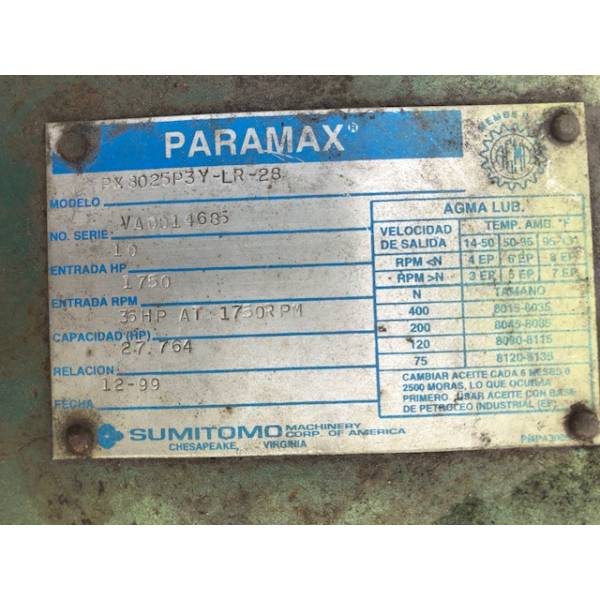 PARAMAX®
MEMBER
AGMA
PX8025P3Y-LR-28
MODELO
VA0014685
NO. SERIE
10
ENTRADA HP
1750
ENTRADA RPM
35HP AT 1750RPM
CAPACIDAD (HP)
27.764
RELACION
12-99
FECHA
AGMA LUB.
VELOCIDAD DE SALIDA TEMP. AMB. °F
14-50 50-95 95-131
RPM <N 4 EP 6 EP 8 EP
RPM >N 3 EP 5 EP 7 EP
N TAMANO
400 8015-8035
200 8045-8085
120 8090-8115
75 8120-8135
CAMBIAR ACEITE CADA 6 MESES O
2500 MORAS, LO QUE OCURRA
PRIMERO. USAR ACEITE CON BASE
DE PETROLEO INDUSTRIAL (EP)
SUMITOMO MACHINERY CORP. OF AMERICA
CHESAPEAKE, VIRGINIA